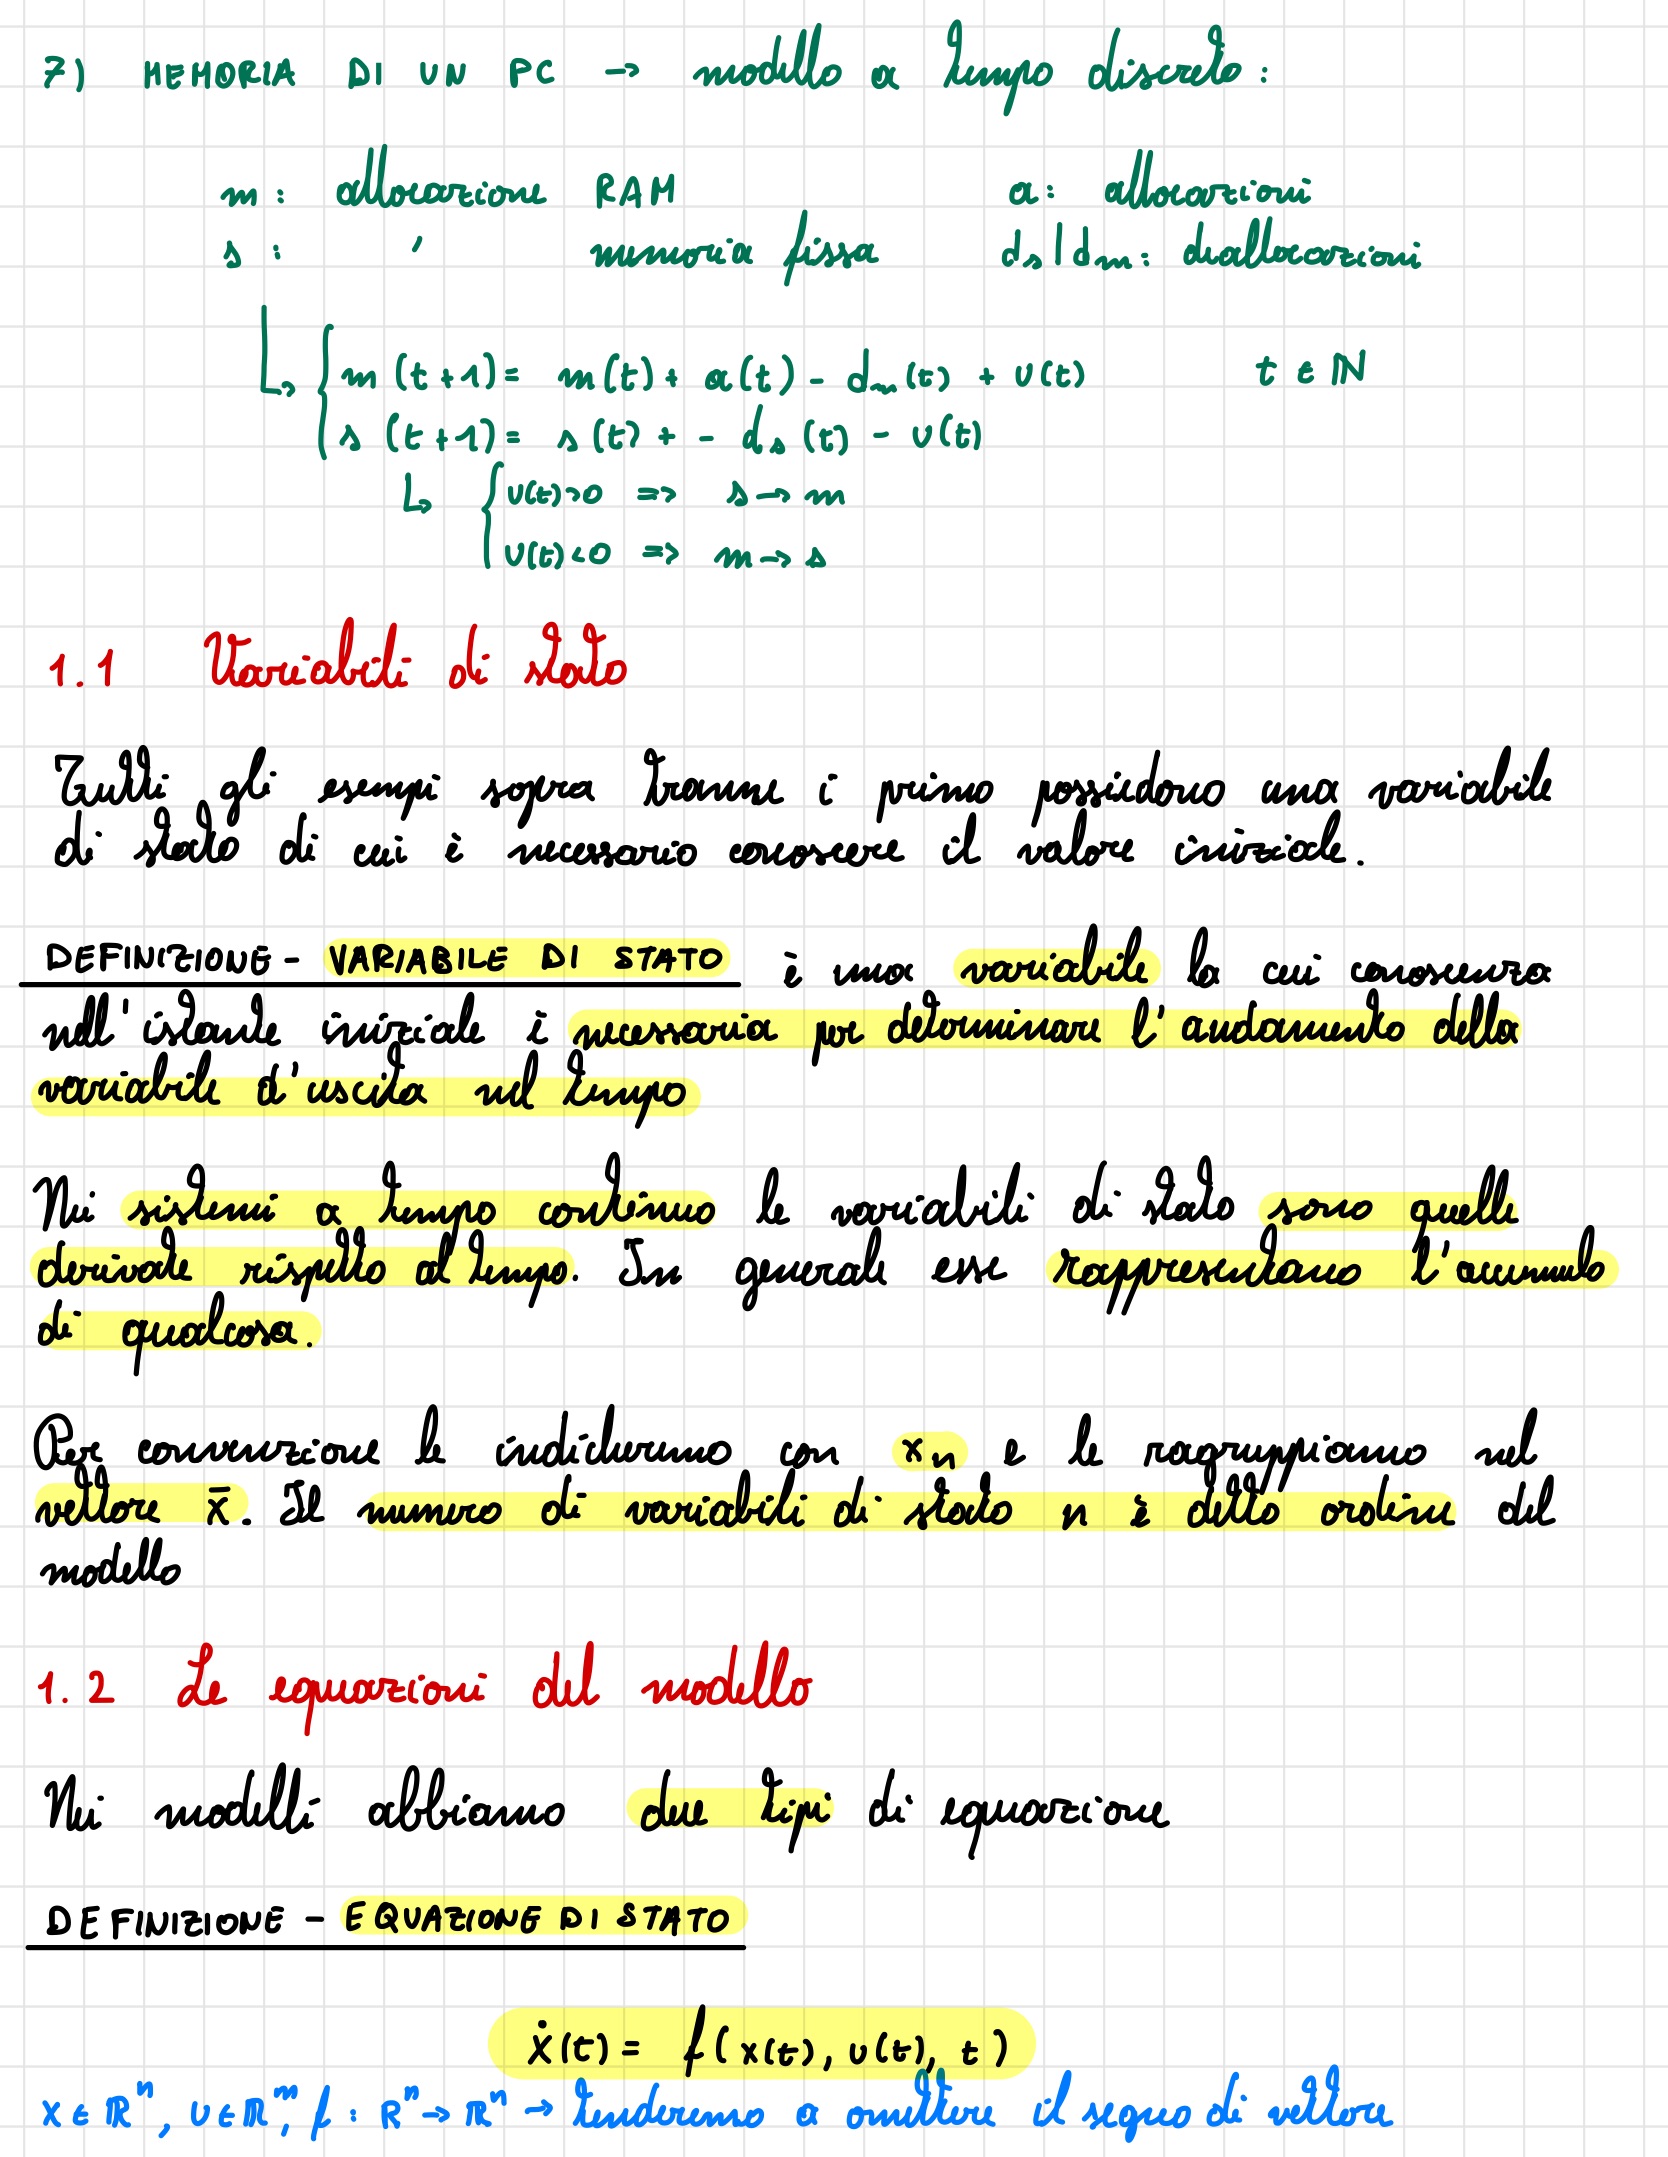 7) MEMORIA DI UN PC → modello a tempo discreto :
m : allocazione RAM a: allocazioni
s : ' memoria fissa ds | dm: deallocazioni
↳ { m (t+1) = m(t) + a(t) - dm(t) + u(t) t ∈ ℕ
s (t+1) = s(t) + - ds(t) - u(t)
↳ { u(t)>0 => s → m
u(t)<0 => m → s
1.1 Variabili di stato
Tutti gli esempi sopra tranne i primo possiedono una variabile
di stato di cui è necessario conoscere il valore iniziale.
DEFINIZIONE - VARIABILE DI STATO è una variabile la cui conoscenza
nell'istante iniziale è necessaria per determinare l'andamento della
variabile d'uscita nel tempo
Nei sistemi a tempo continuo le variabili di stato sono quelle
derivate rispetto al tempo. In generale esse rappresentano l'accumulo
di qualcosa.
Per convenzione le indicheremo con xn e le ragruppiamo nel
vettore x̄. Il numero di variabili di stato n è detto ordine del
modello
1.2 Le equazioni del modello
Nei modelli abbiamo due tipi di equazione
DEFINIZIONE - EQUAZIONE DI STATO
ẋ(t) = f(x(t), u(t), t)
x ∈ ℝⁿ, u ∈ ℝᵐ, f : Rⁿ → ℝⁿ → tenderemo a omettere il segno di vettore